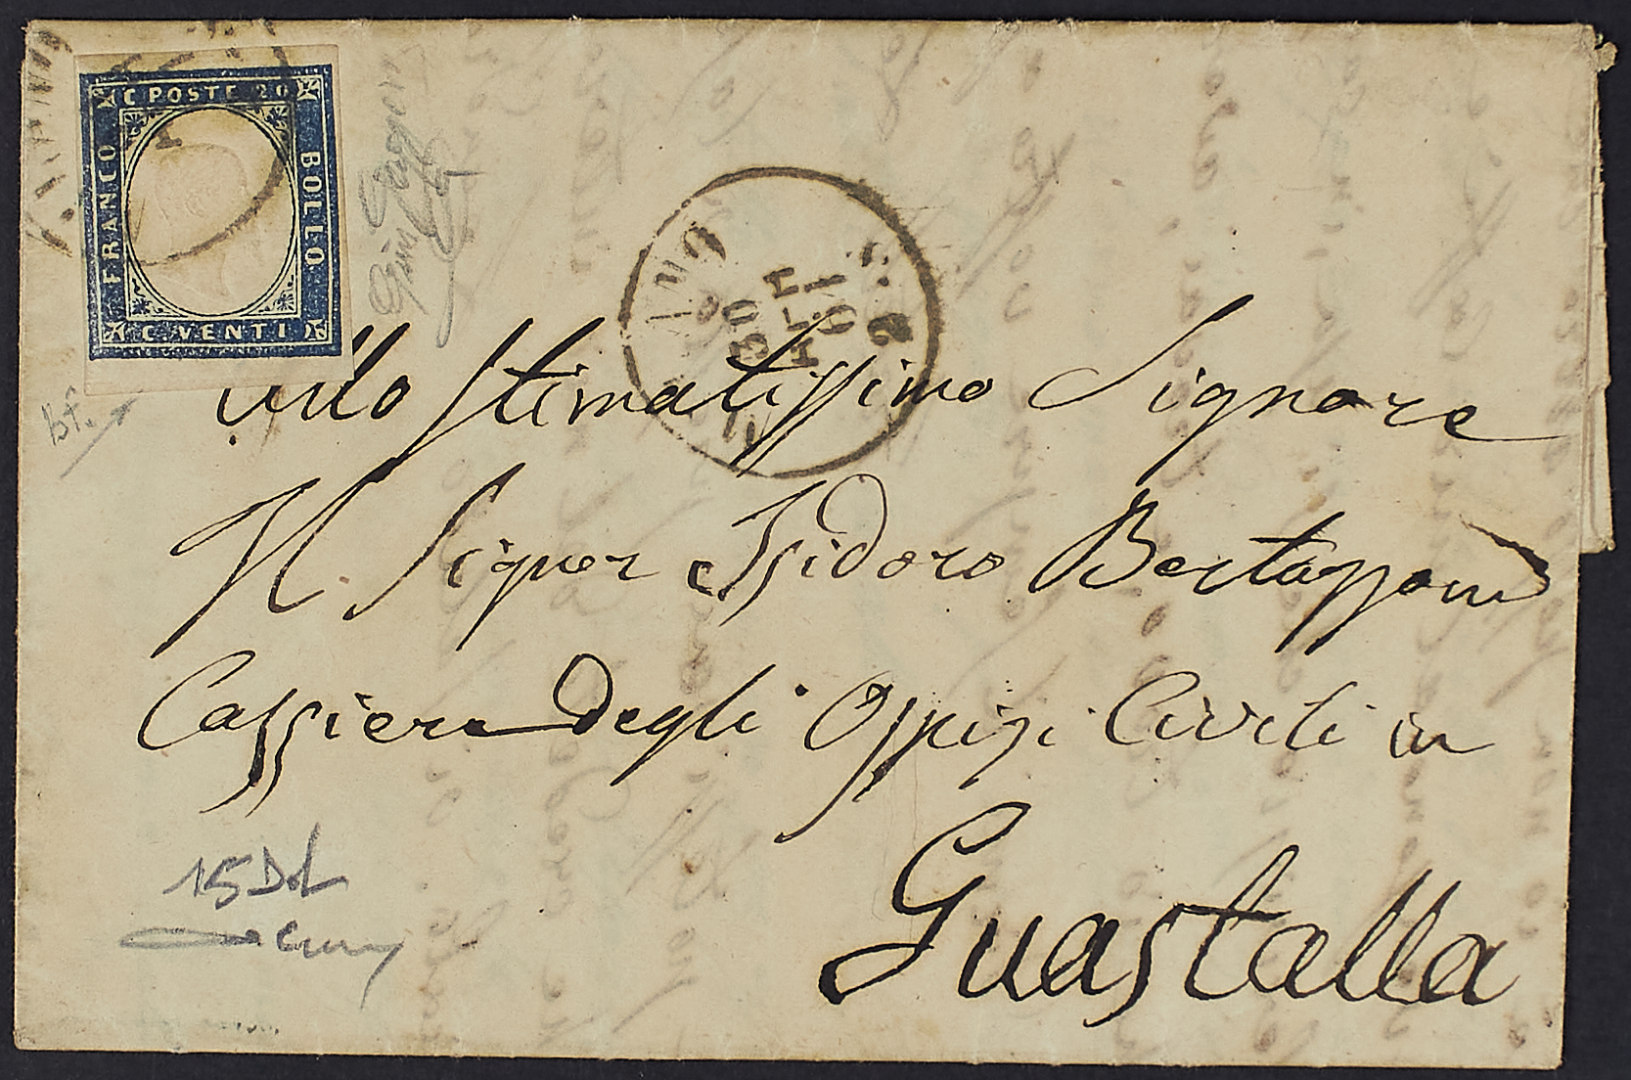 C POSTE 20
FRANCO
BOLLO
C. VENTI
30
61
Allo Stimatissimo Signore
Il Signor Issidoro Bertazzoni
Cassiere degli Ospizi Civili in
Guastalla
15 Dol